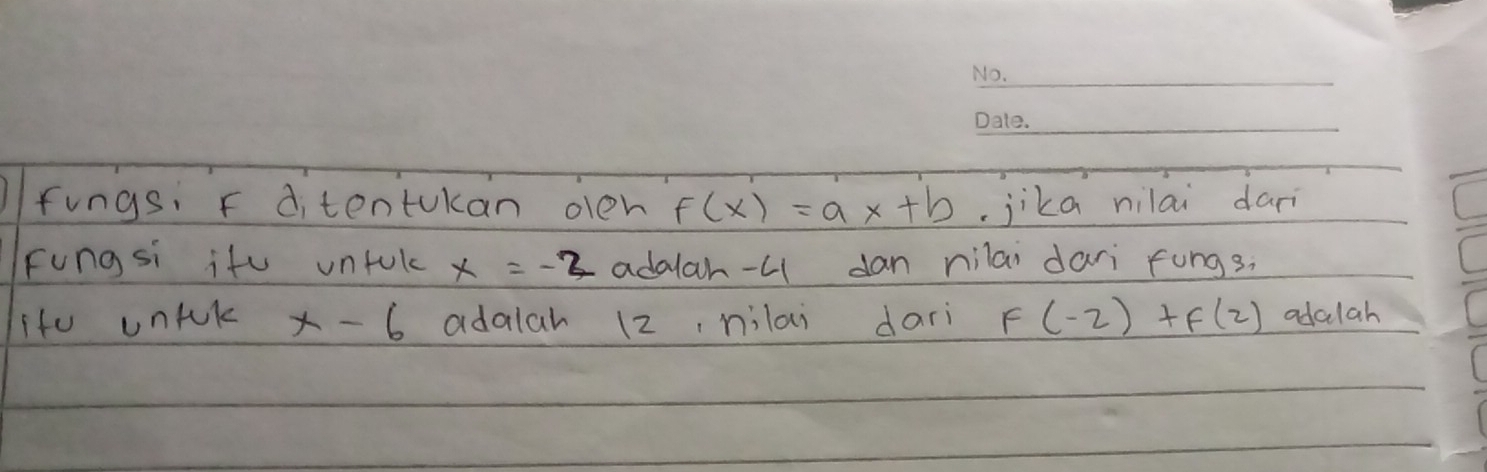 No.
Date.
fungsi F ditentukan oleh F(x) = ax+b. jika nilai dari
Fungsi itu untuk x = -3 adalah -4 dan nilai dari fungsi
itu untuk x - 6 adalah 12, nilai dari F(-2) + F(2) adalah